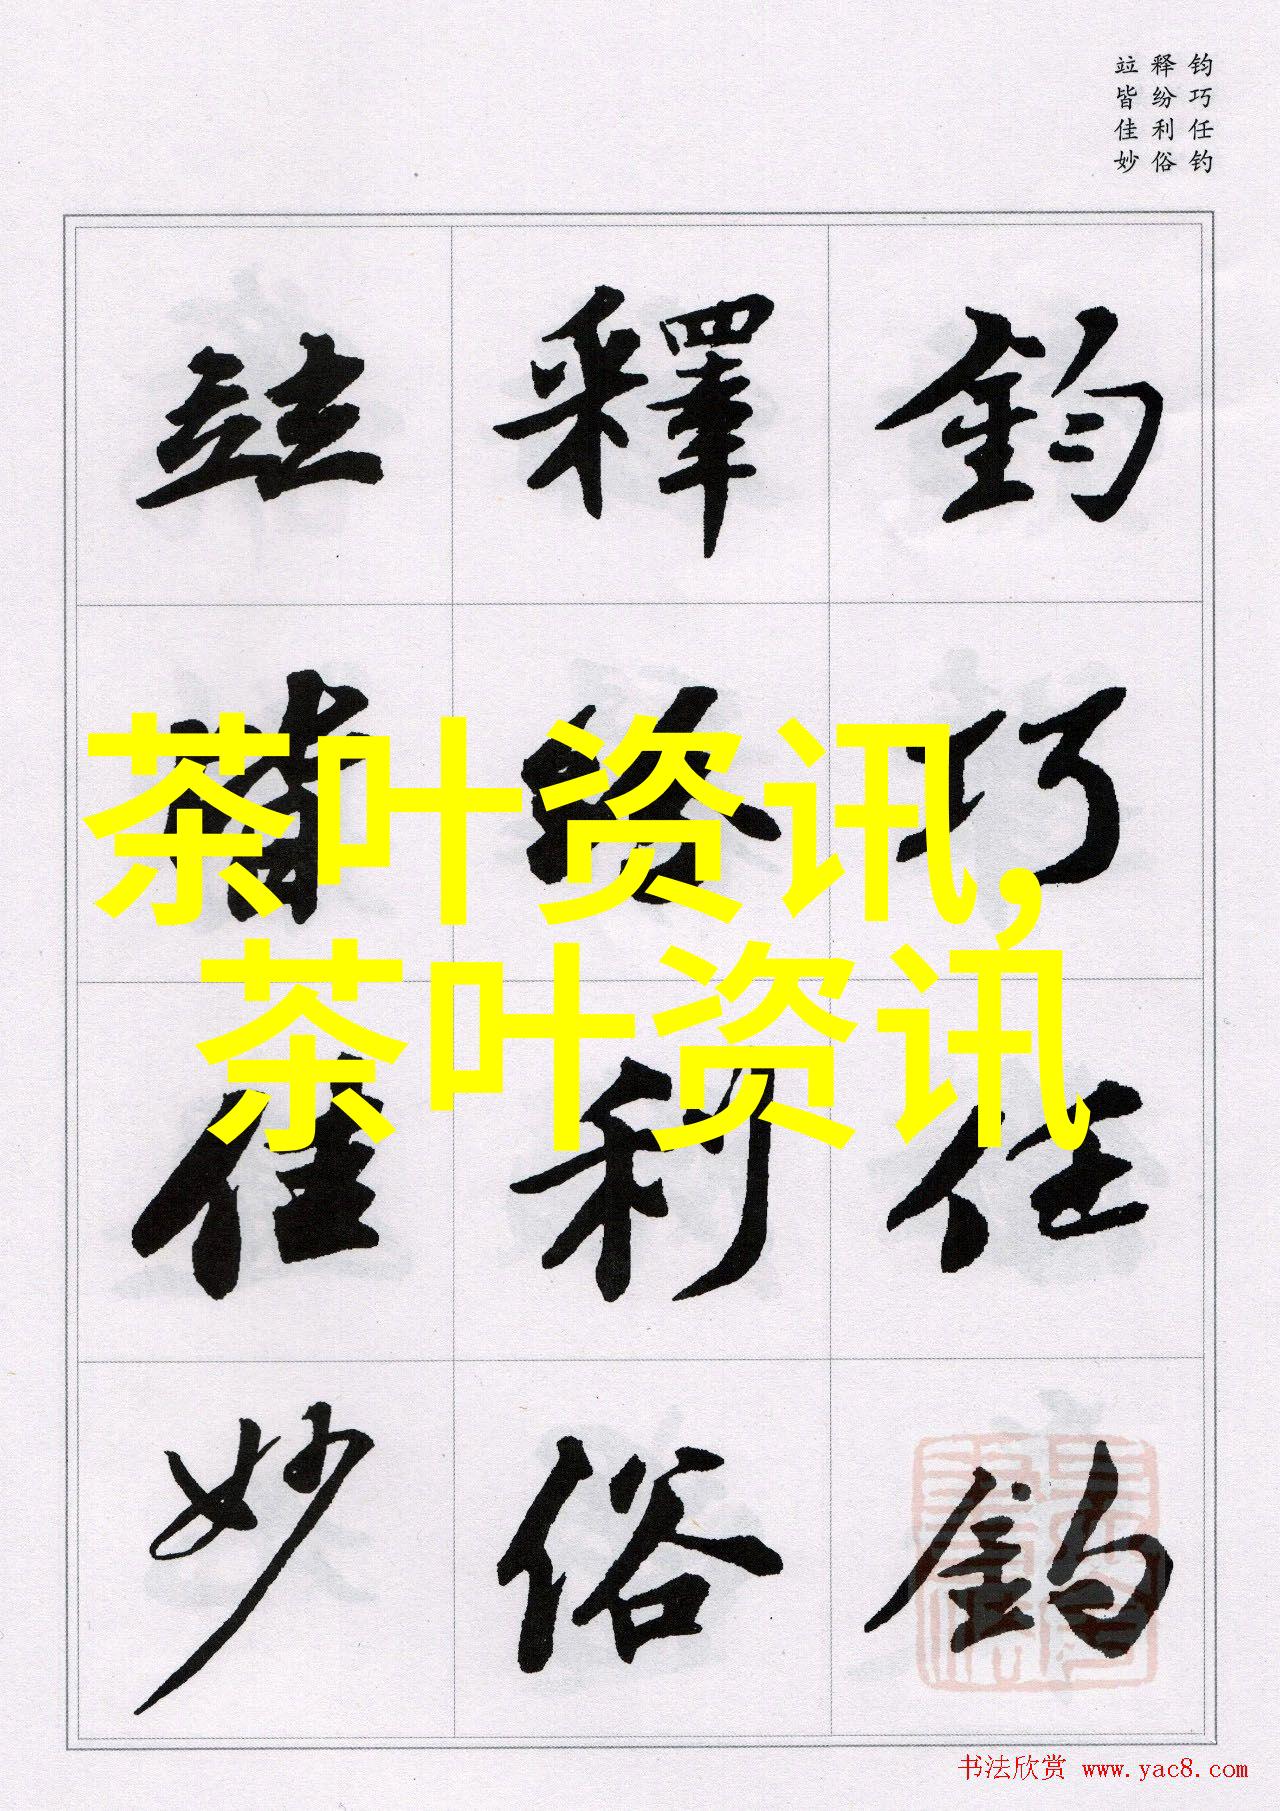 钧巧任钓
释纷利俗
竝皆佳妙
鈞 釋 竝
巧
任 利 佳
釣 俗 妙
茶叶资讯,
茶叶资讯
书法欣赏 www.yac8.com